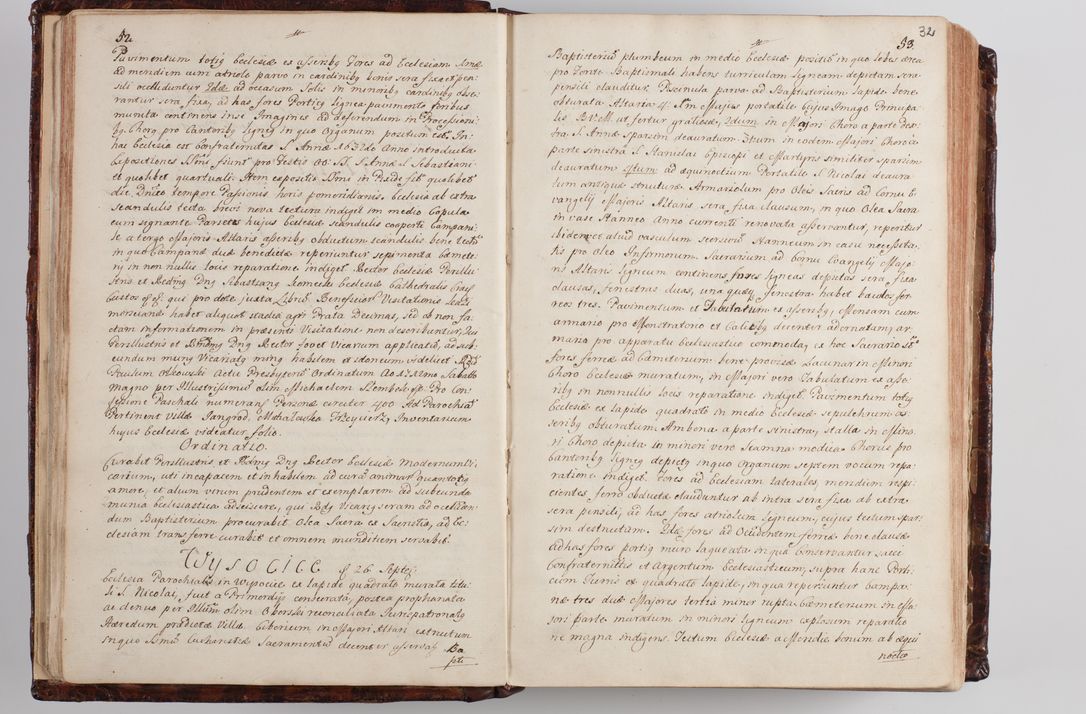 52
Pavimentum totiq Ecclesiæ ex asseribq Fores ad Ecclesiam Unæ
ad meridiem cum atriolo parvo in cardinibq bonis sera fixa et pen-
sili occlduntur 2dæ ad occasum Solis in minoribq cardinibq obse-
rantur sera fixa, ad has fores Porticq lignea pavimento foribus
munita continens in se Imagines ad deferendum in Processioni-
bq. Chorq pro Cantoribq ligneq in quo Organum positum est. In
hac Ecclesia est Confraternitas S. Annæ 1632do Anno introducta
Expositiones SSmi fiunt pro Festis OO. SS. S. Annæ S. Sebastiani
et quolibet quartuali. Item expositio SSmi in Pixide fit quolibet
die Dnico tempore Passionis horis pomeridianis. Ecclesia ab extra
scandulis tecta brevi nova tectura indiget in medio Cupula
cum signante Parietes hujus Ecclesiæ scandulis cooperti Campani-
le a tergo Majoris Altaris asseribq obductum scandulis bene tectu
in quo Campanæ duæ benedictæ reperiuntur sepimenta Cæmete-
rij in non nullis locis reparatione indiget. Rector Ecclesiæ Perillu-
stris et Rdmq Dnq Sebastianq Ecclesiæ Cathedralis Crac
Custos qui pro dote juxta Librū Beneficior Visitationis
morscianæ habet aliquot stadia agri Prata Decimas, sed ob non fa-
ctam informationem in præsenti Visitatione non describuntur, Qui
Perillustris et Rdmq Dnq Rector fovet Vicarium applicatū, ad sub-
eundum munq Vicariatq minq habilem et idoneum videlicet Rdū
Paulum Olkowski Actu Presbyterū Ordinatum Ao 1722mo Sabatto
Magno per Illustrissimū olim Michaelem Szembek Pro Con-
fessione Paschali numerans Personæ circiter 400. Ad Parochiā
Pertinent Villæ Jangrod, Michałowka Trzycierz, Inventarium
hujus Ecclesiæ videatur folio.
Ordinatio.
Curabit Perillustris et Rdmq Dnq Rector Ecclesiæ modernum Vi-
carium, uti incapacem et inhabilem ad curā animar quantotiq
amovere, et alium virum prudentem et exemplarem ad subeunda
munia Ecclesiastica adsciscere, qui Rdq Vicariq seram ad occlden-
dum Baptisterium procurabit Olea Sacra ex Sacristia, ad Ec-
clesiam transferre curabit et omnem munditiem servabit.
Wysocice d 26 Septēi
Ecclesia Parochialis in Wysocice ex lapide quadrato murata titu-
li S. Nicolai, fuit a Primordijs consecrata, postea prophanata
ac denuo per Illūm olim Oborski reconciliata Jurispatronatq
Hæredum prædictæ Villæ. Ciborium in Majori Altari extructum
in quo SSmū Eucharistiæ Sacramentū decenter asservaʒ Ba
pti
53
32
Baptisteriū plumbeum in medio Ecclesiæ positū in quo lebes ærea
pro Fonte Baptismali habens turriculam ligneam depictam sera
pensili clauditur. Piscinula parva ad Baptisterium lapide bene
obturata Altaria 4. In Majori portatile cujus Imago Principa-
lis B.V.M. ut fertur gratiosa, 2dum in Majori Choro a parte dex-
tra S. Annæ sparsim deauratum 3tium in eodem Majori Choro a
parte sinistra S. Stanislai Episcopi et Martyris similiter sparsim
deauratum 4tum ad æquinoctium Portatile S. Nicolai deaura-
tum antiquæ structuræ. Armariolum pro Oleis Sacris ad Cornu E-
vangelij Majoris Altaris sera fixa clausum, in quo Olea Sacra
in vase Stanneo Anno currenti renovata asservantur, reperitur
ibidem et aliud vasculum seorsivū stanneum in casu necessita-
tis pro oleo Infirmorum. Sacrarium ad cornu Evangelij Majo-
ri Altaris ligneum continens fores ligneas depictas sera fixa
clausas, Fenestras duas, una quæq fenestra habet baculos fer-
reos tres. Pavimentum et Tabulatum ex asseribq, Mensam cum
armario pro Monstratorio et Calicibq decenter adornatam, ar-
maria pro apparatu Ecclesiastico commoda, ex hoc Sacrario st
fores ferreæ ad Cæmeterium bene provisæ Lacunar in Minori
Choro Ecclesiæ muratum, in Majori vero Tabulatum ex asse-
ribq in nonnullis locis reparatione indiget. Pavimentum totiq
Ecclesiæ ex lapide quadrato in medio Ecclesiæ sepulchrum as-
seribq obturatum. Ambona a parte sinistra, stalla in Mino-
ri Choro depicta in minori vero Scamna modica. Chorus pro
Cantoribq ligneq depictq in quo Organum septem vocum repa-
ratione indiget. Fores ad Ecclesiam laterales, meridiem respi-
cientes, ferro obductæ clauduntur ab intra sera fixa ab extra
sera pensili, ad has fores atriolum ligneum, cujus tectum spar-
sim destructam. 2dæ fores ad Occidentem ferreæ bene clausæ
ad has fores portiq muro laqueata in qua conservantur sacci
Confraternitatis et Argentum Ecclesiasticum, supra hanc Porti-
cum Turris ex quadrato lapide, in qua reperiuntur Campa-
næ tres duæ Majores tertia minor rupta. Cæmeterium in Ma-
jori parte muratum in minori ligneum explosum reparatio-
ne magna indigens. Tectum Ecclesiæ a Meridie bonum ab æqui
noctio